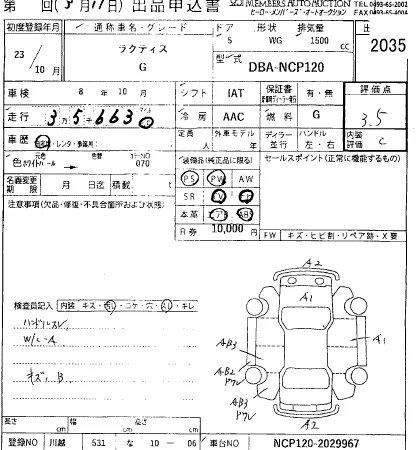 第 回(3月17日) 出品申込書
MEMBERS AUTO AUCTION TEL 0493-65-2002
ヒーロー・メンバーズ・オートオークション FAX 0493-65-2004
初度登録年月 通称車名・グレード ドア 形状 排気量
23/10月 ラクティス G 5 WG 1500 cc 2035
型式 DBA-NCP120
車検 8年 10月 シフト IAT 保証書 有・無 評価点
走行 3万5663 冷房 AAC 燃料 G 3.5
車歴 自家用・レンタ・事業用 定員 人 外車モデル 年 ディーラー 並行 ハンドル 左・右 内装評価 C
元色 色替 カラーNO
色 ホワイトパール 070
装備品(純正品に限る) セールスポイント(正常に機能するもの)
名義変更期限 月 日迄 積載 t
PS PW AW
SR TV
本革 エアB ABS
注意事項(欠品・修復・不具合箇所および状態)
R券 10,000円
FW キズ・ヒビ割・リペア跡・X要
検査員記入 内装 キズ・コゲ・穴・スレ・キレ
ハンドルスレ
W/C-A
キズ、B
A2
A1
A1
AB3
AB2
ドワレ
AB3
ドワレ
A2
長さ cm 幅 cm 高さ cm
登録NO 川越 531 な 10-06 車台NO NCP120-2029967